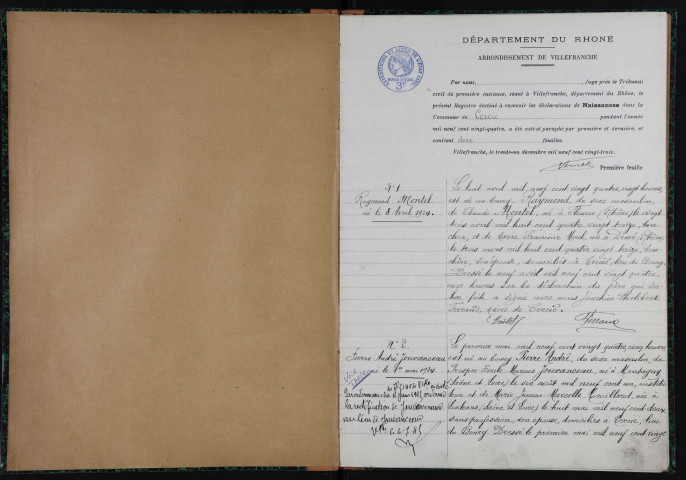 DÉPARTEMENT DU RHONE
ARRONDISSEMENT DE VILLEFRANCHE
3F
Par nous, Juge près le Tribunal
civil de première instance, séant à Villefranche, département du Rhône, le
présent Registre destiné à recevoir les déclarations de Naissances dans la
Commune de Cercié pendant l'année
mil neuf cent vingt-quatre, a été coté et paraphé par première et dernière, et
contient feuilles.
Villefranche, le trente-un décembre mil neuf cent vingt-trois.
Première feuille
N° 1
Raymond Montel
né le 8 Avril 1924.
Le huit avril mil neuf cent vingt quatre, vingt heures,
est né au bourg Raymond du sexe masculin,
de Claude Montel, né à (Rhône) le vingt
trois avril mil huit cent quatre vingt treize,
et de Marie Francine née à (Rhône)
le trois mars mil huit cent quatre vingt treize,
son épouse, domiciliés à Cercié, lieu du Bourg.
Dressé le neuf avril mil neuf cent vingt quatre
onze heures sur la déclaration du père qui lec-
ture faite a signé avec nous Joachim Philibert
Ferraud, maire de Cercié.
Montel Ferraud
N° 2
Pierre André Jouvanceau
né le 1er mai 1924
la rectification de Jouvanceau
au lieu de
Le premier mai mil neuf cent vingt quatre, cinq heures
est né au bourg Pierre André, du sexe masculin, de
Emile Marius Jouvanceau, né à Montagny
(Saône et Loire) le six août mil neuf cent un, institu-
teur et de Marie Jeanne Marcelle née à
(Saône et Loire) le huit mai mil neuf cent deux
sans profession, son épouse, domiciliés à Cercié, lieu
du Bourg. Dressé le premier mai mil neuf cent vingt